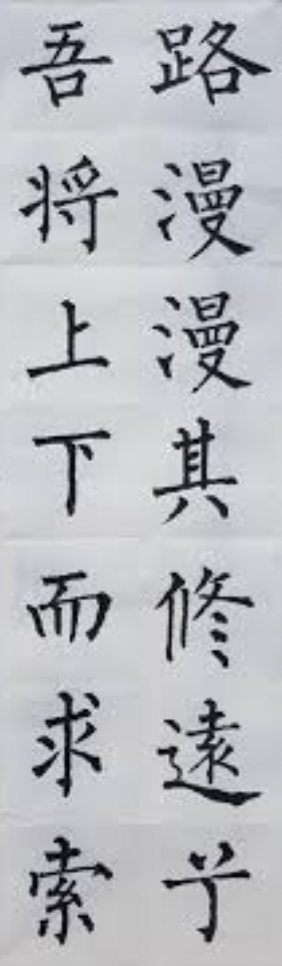 路漫漫其修遠兮
吾将上下而求索